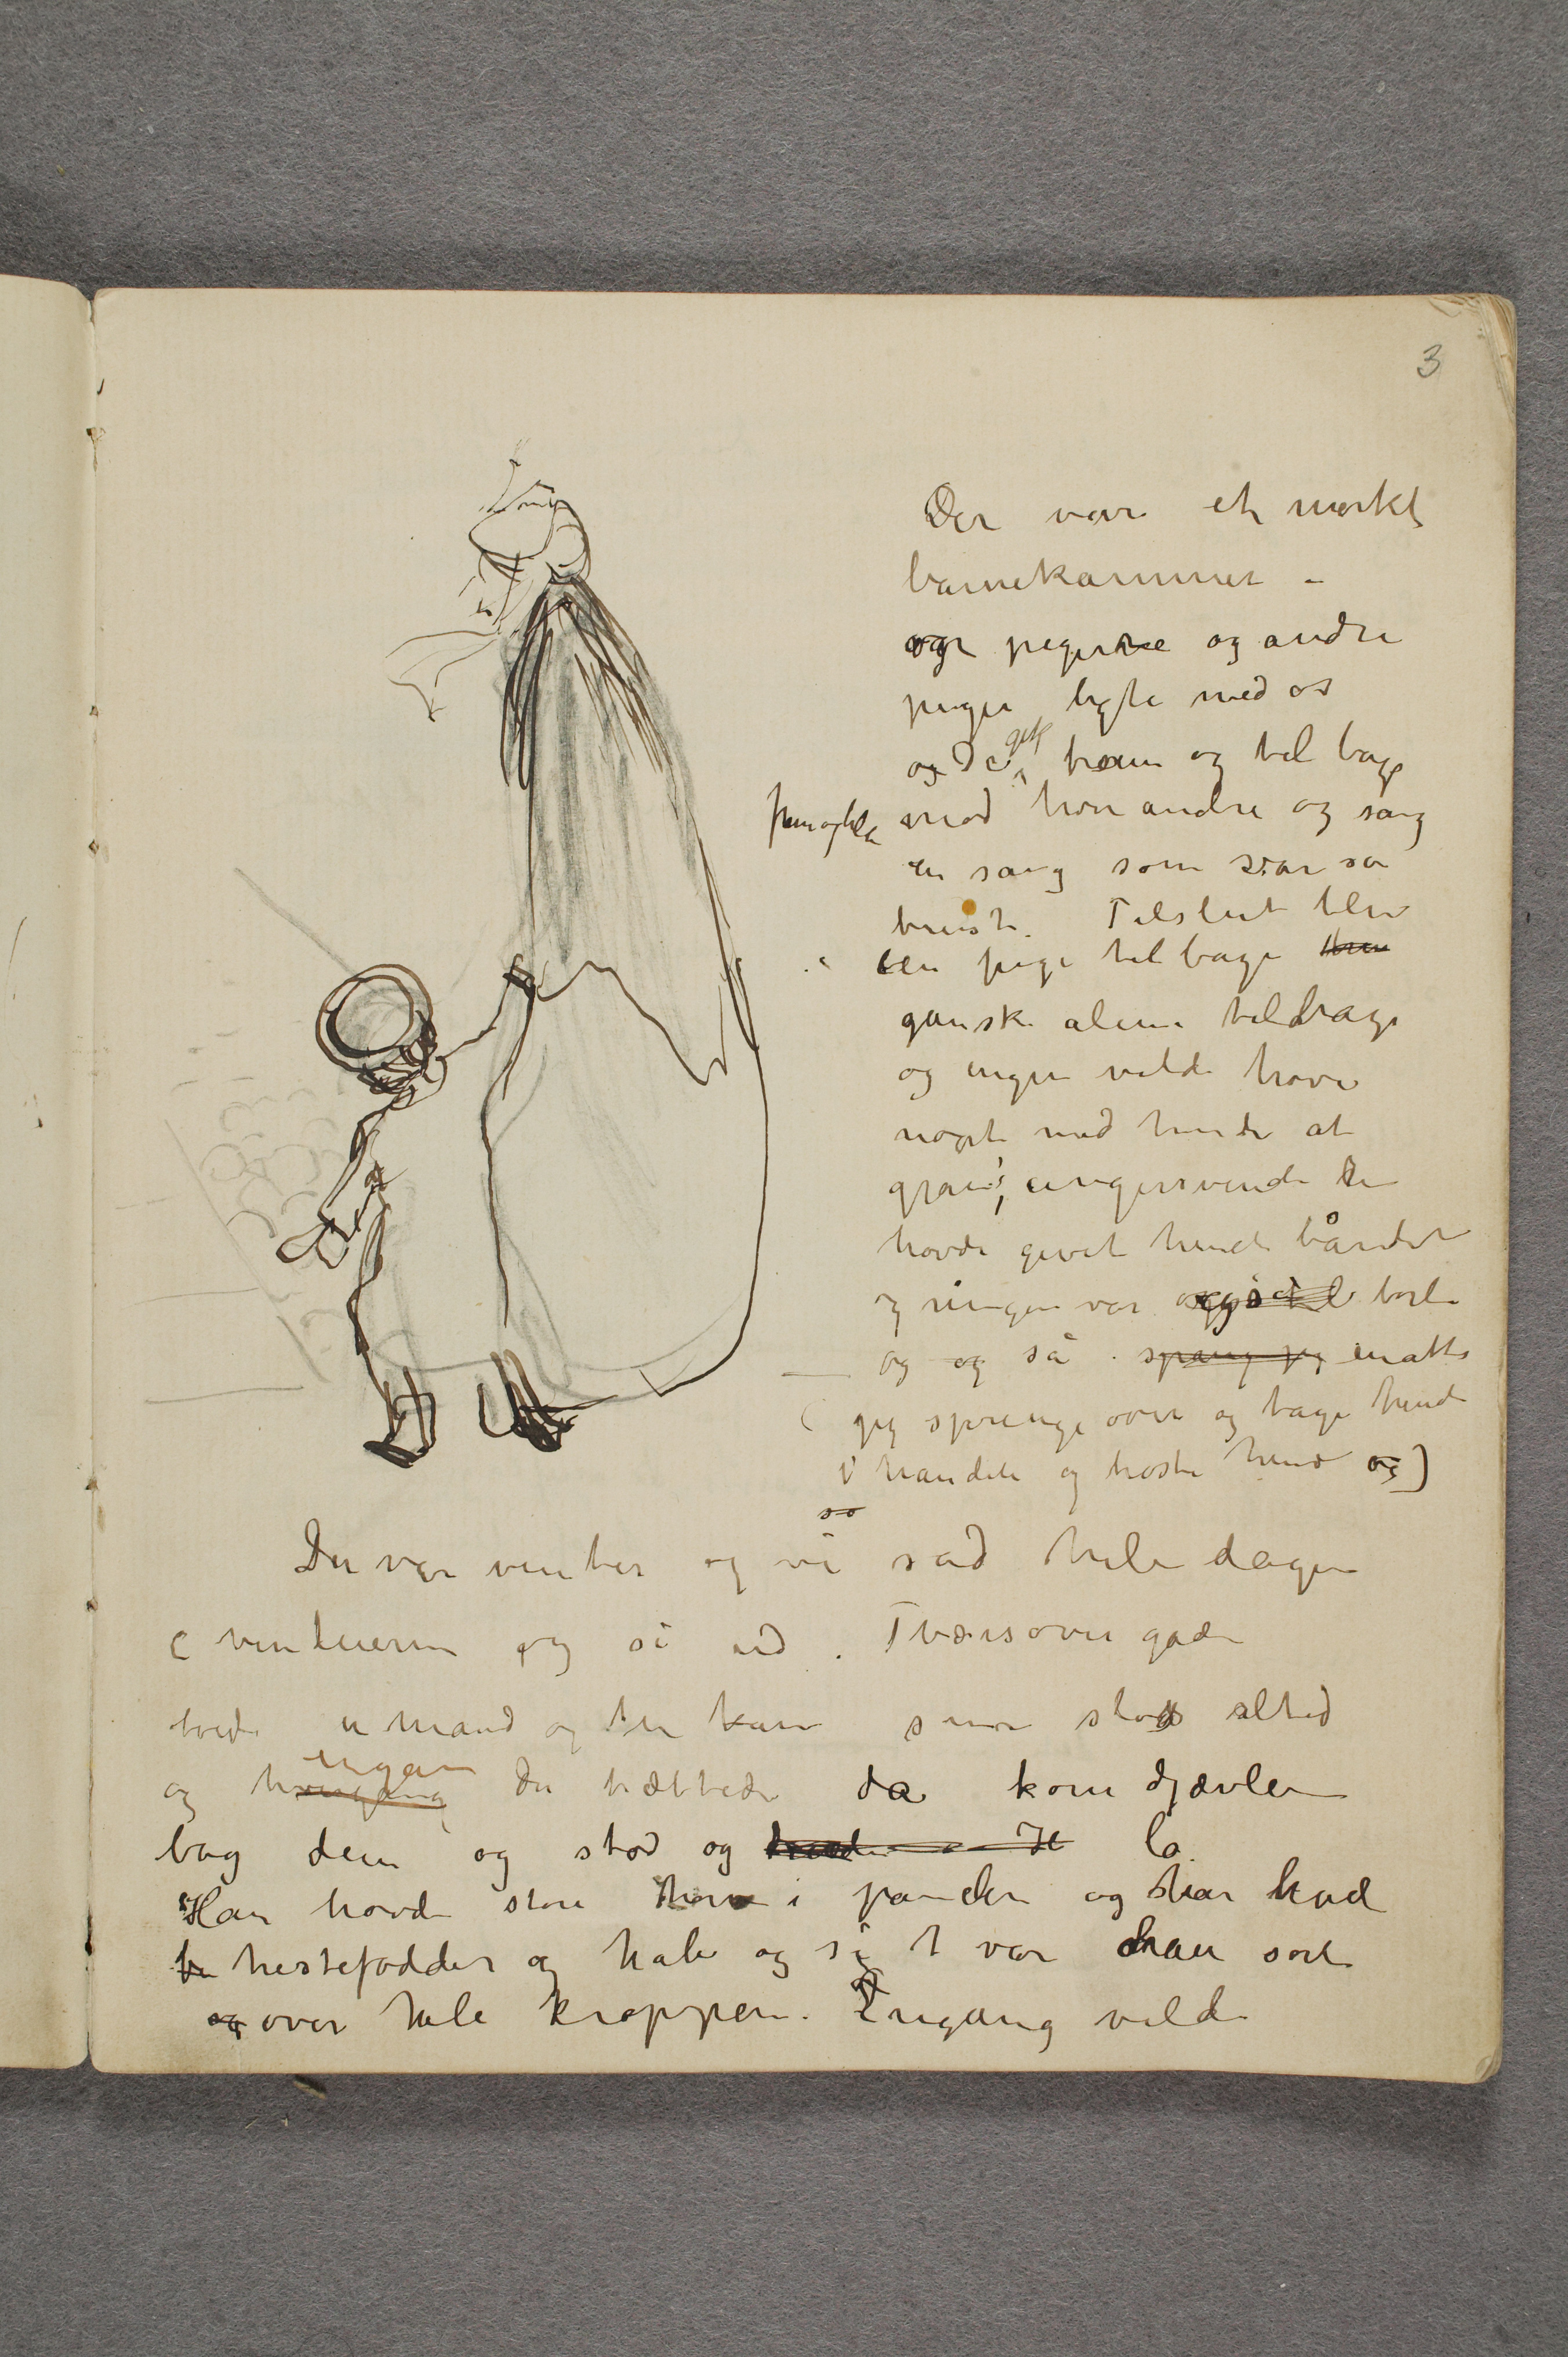 3
Der var et mørkt
barnekammer –
og pigerne og andre
piger legte med os
og de gik frem og tilbage
frem og tilba mod hverandre og sang
en sang som var så
trist. Tilslut blev
en pige tilbage
ganske alene tilbage
og ingen vilde have
noget med hende at
gjøre; ungersvenden
havde givet hende båndet
og ringen var borte
og og så sprang jeg måtte
jeg springe over og tage hende
i hånden og trøste hende og)
så
Der var vinter og vi sad hele dagen
i vinduerne og så ud. Tværsover gaden
boede en mand og en kone som sloss altid
og engang der trættede da kom djævlen
bag dem og stod og lo
Han havde store horn i panden og han havde
hestefødder og hale og så var han sort
og over hele kroppen. Engang vilde